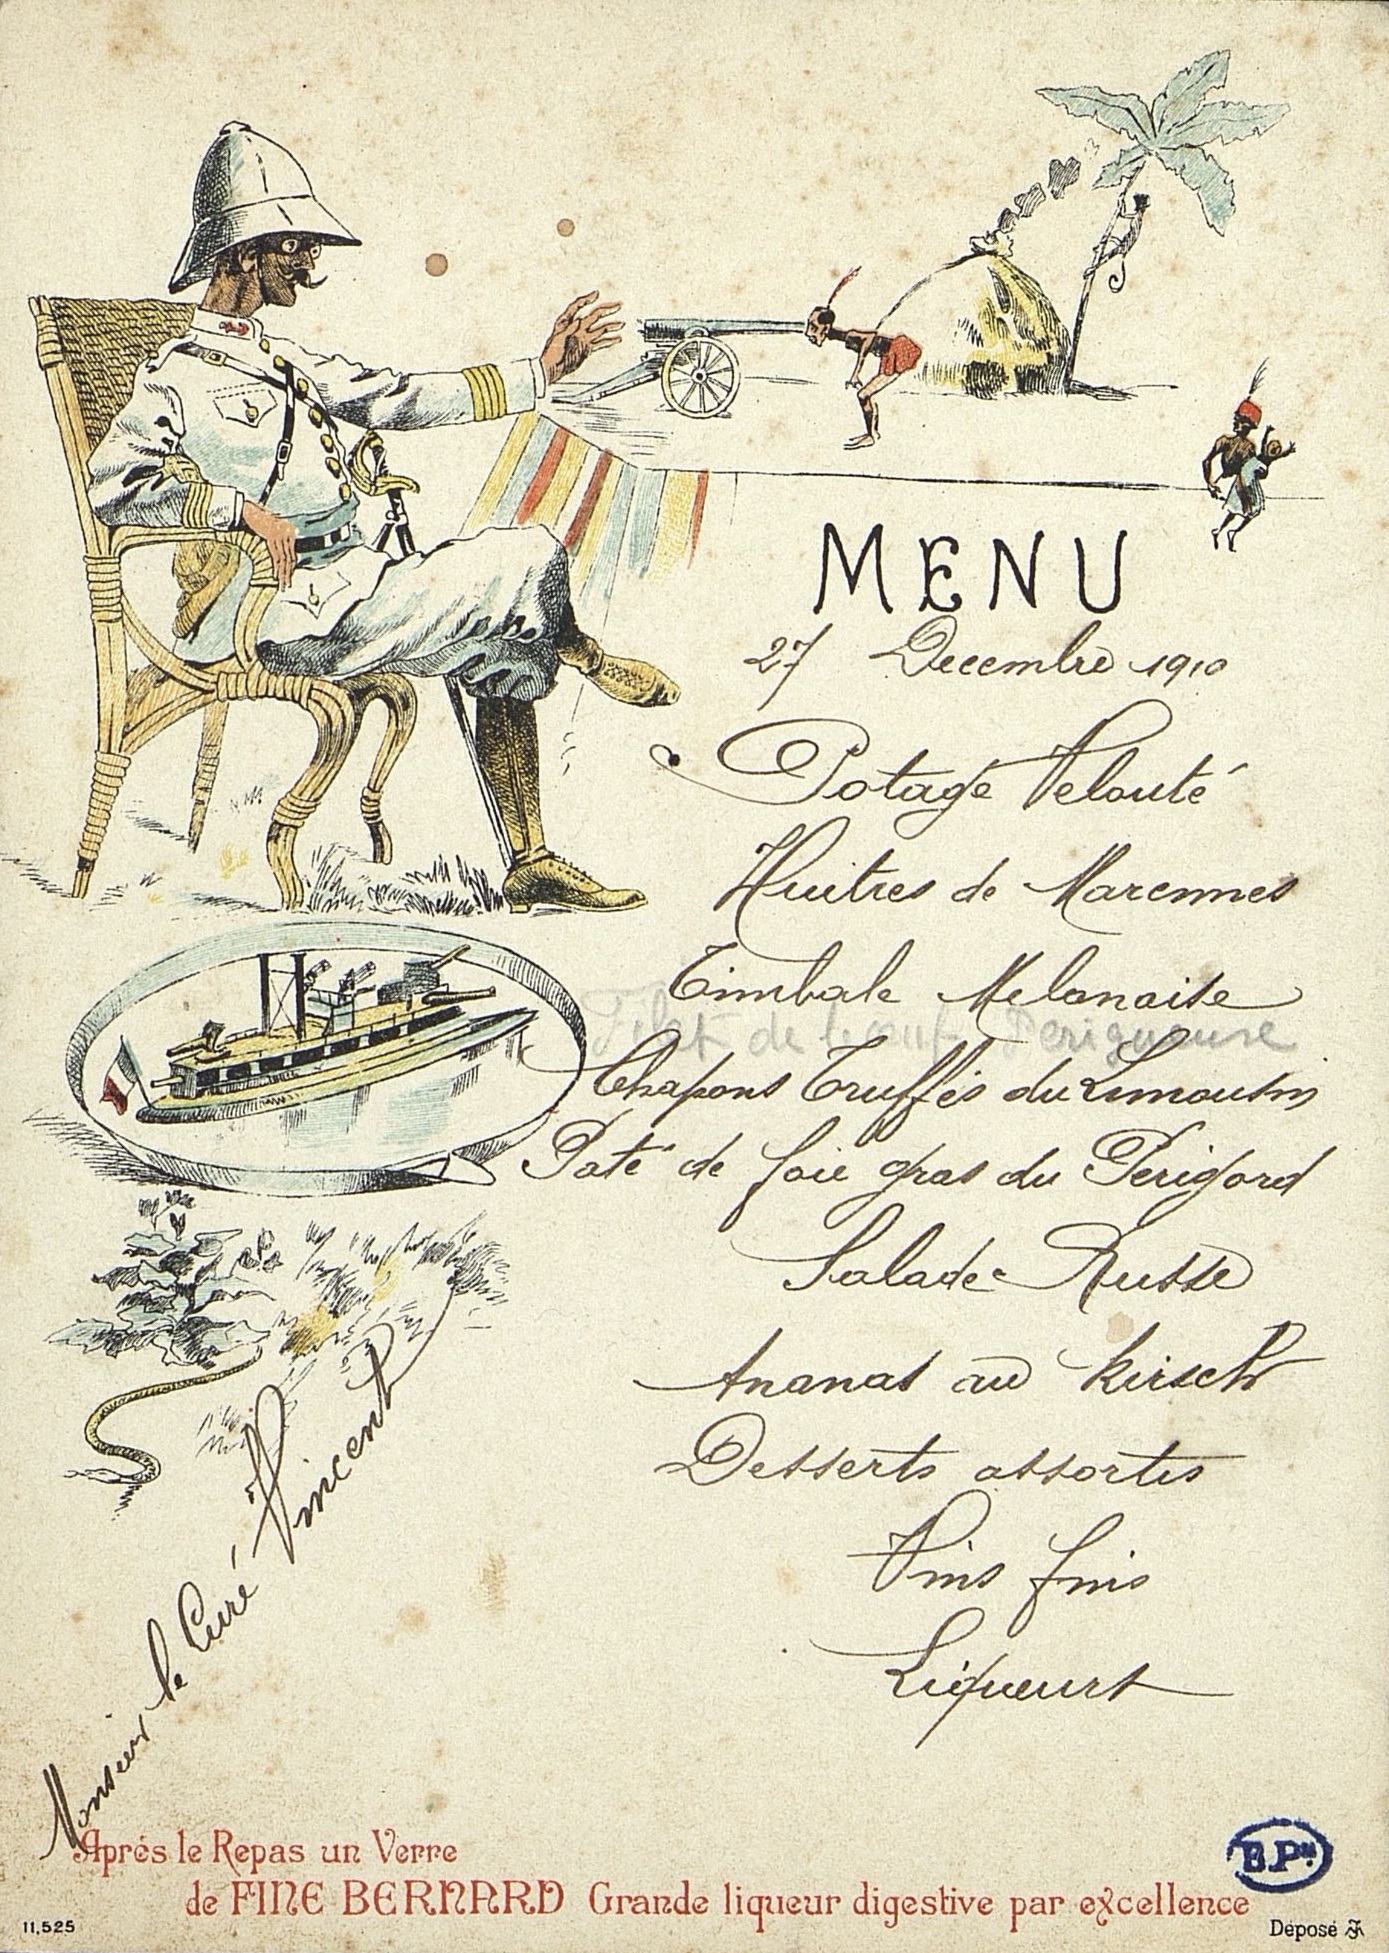 MENU
27 Decembre 1910
Potage Velouté
Huitres de Marennes
Timbale Melanaise
Filet de boeuf Perigueuse
Chapons Truffés du Limousin
Paté de foie gras du Perigord
Salade Russe
Ananas au Kirsch
Desserts assortis
Vins fins
Liqueurs
Monsieur le Curé Vincent
Aprés le Repas un Verre
de FINE BERNARD Grande liqueur digestive par excellence
11.525
B.Px
Déposé